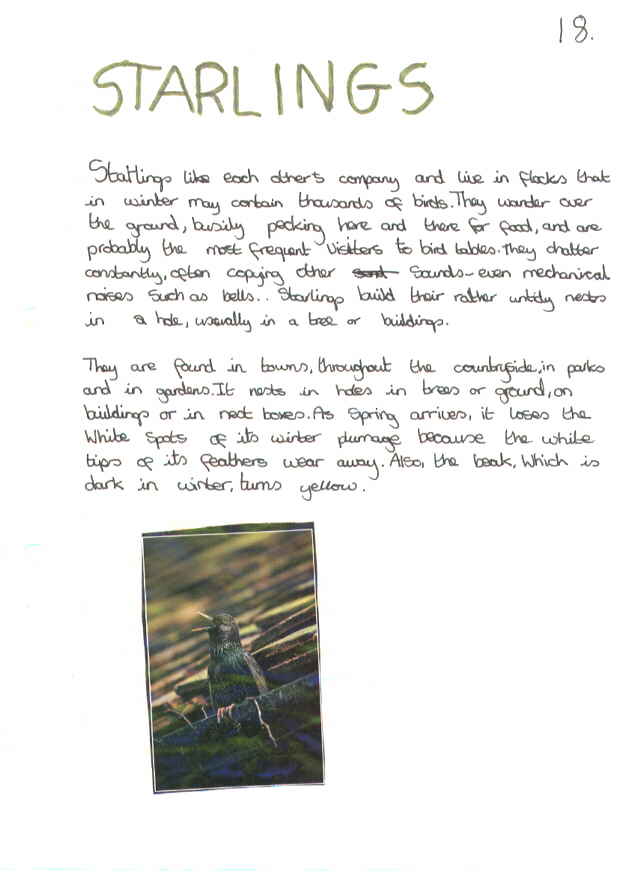 18.
STARLINGS
Starlings like each other's company and live in flocks that
in winter may contain thousands of birds. They wander over
the ground, busily pecking here and there for food, and are
probably the most frequent visiters to bird tables. They chatter
constantly, often copying other sounds - even mechanical
noises such as bells.. Starlings build their rather untidy nests
in a hole, usually in a tree or buildings.
They are found in towns, throughout the countryside, in parks
and in gardens. It nests in holes in trees or ground, on
buildings or in nest boxes. As Spring arrives, it loses the
White spots of its winter plumage because the white
tips of its feathers wear away. Also, the beak, which is
dark in winter, turns yellow.